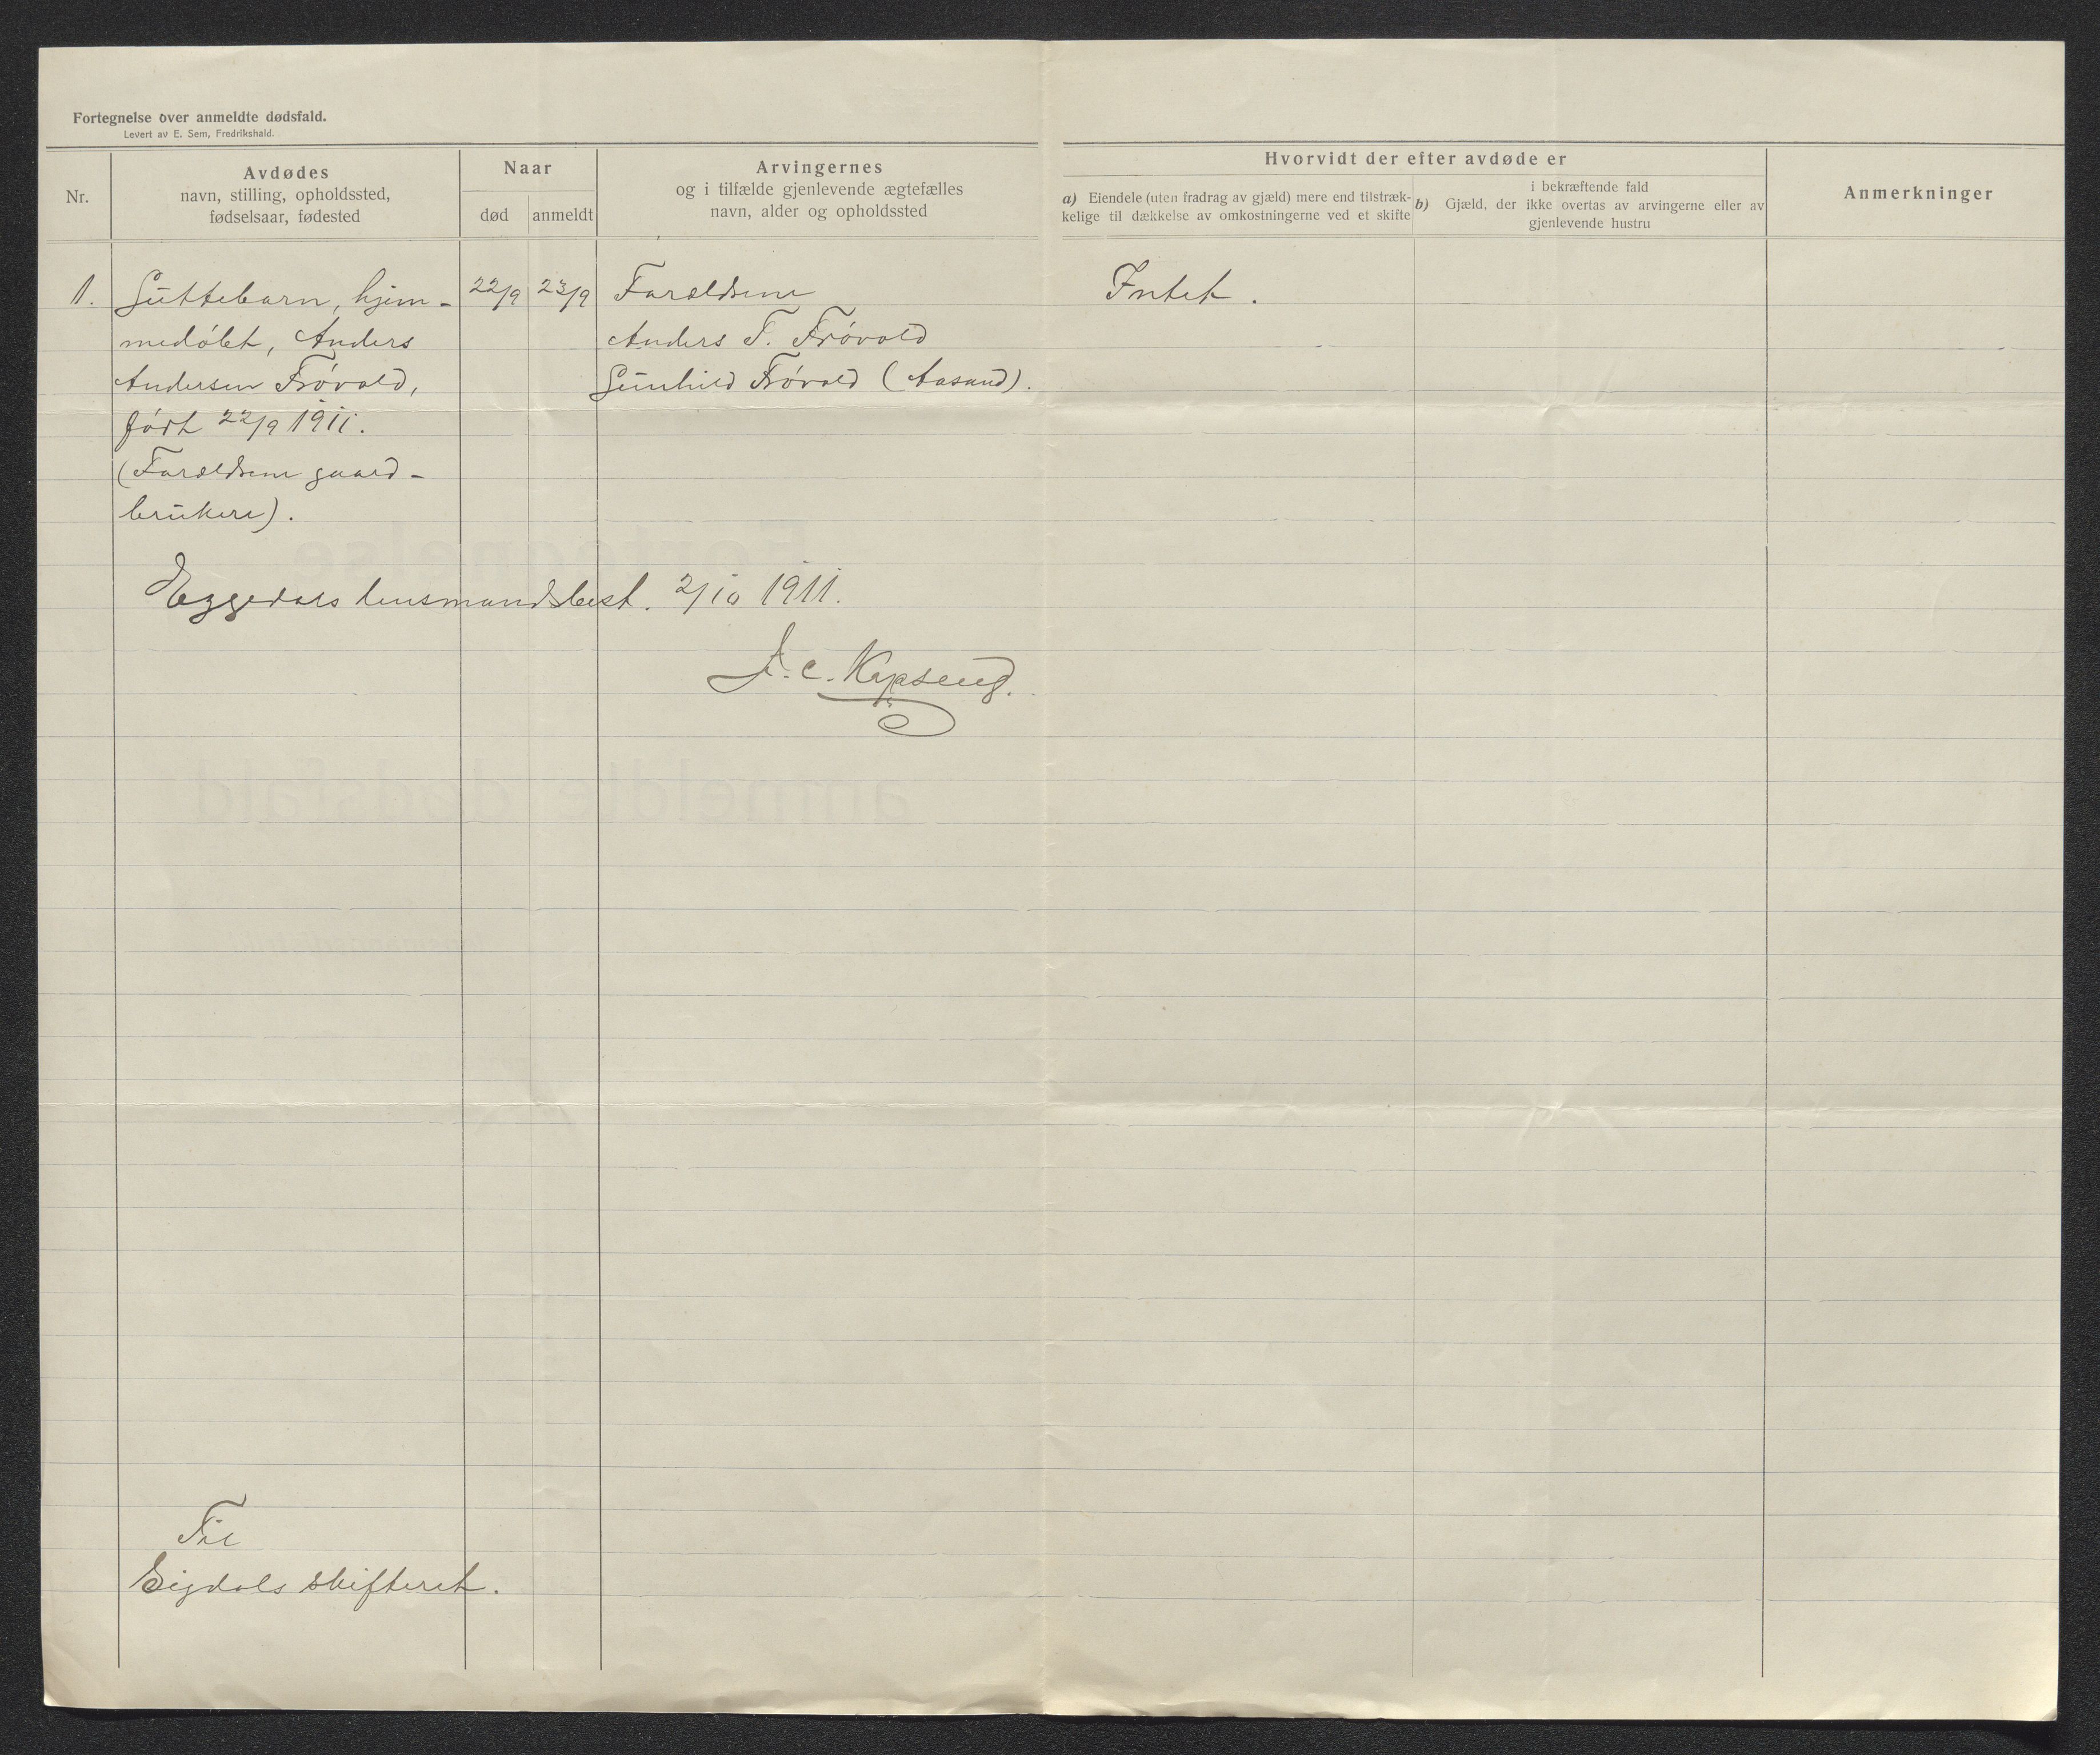 Fortegnelse over anmeldte dødsfald.
Levert av E. Sem, Fredrikshald.
Nr.
Avdødes
navn, stilling, opholdssted,
fødselsaar, fødested
Naar
død
anmeldt
Arvingernes
og i tilfælde gjenlevende ægtefælles
navn, alder og opholdssted
Hvorvidt der efter avdøde er
a) Eiendele (uten fradrag av gjæld) mere end tilstræk-
kelige til dækkelse av omkostningerne ved et skifte
i bekræftende fald
b) Gjæld, der ikke overtas av arvingerne eller av
gjenlevende hustru
Anmerkninger
1.
Guttebarn, hjem-
medøbt, Anders
Andersen Frøvold,
født 22/9 1911.
(Forældrene gaard-
brukere).
22/9
23/9
Forældrene
Anders T. Frøvold
Gunhild Frøvold (Aasand).
Intet.
Eggedals lensmandsbest. 2/10 1911.
A. C.
Til
Sigdals skifteret.
Fortegnelse
anmeldte dødsfald